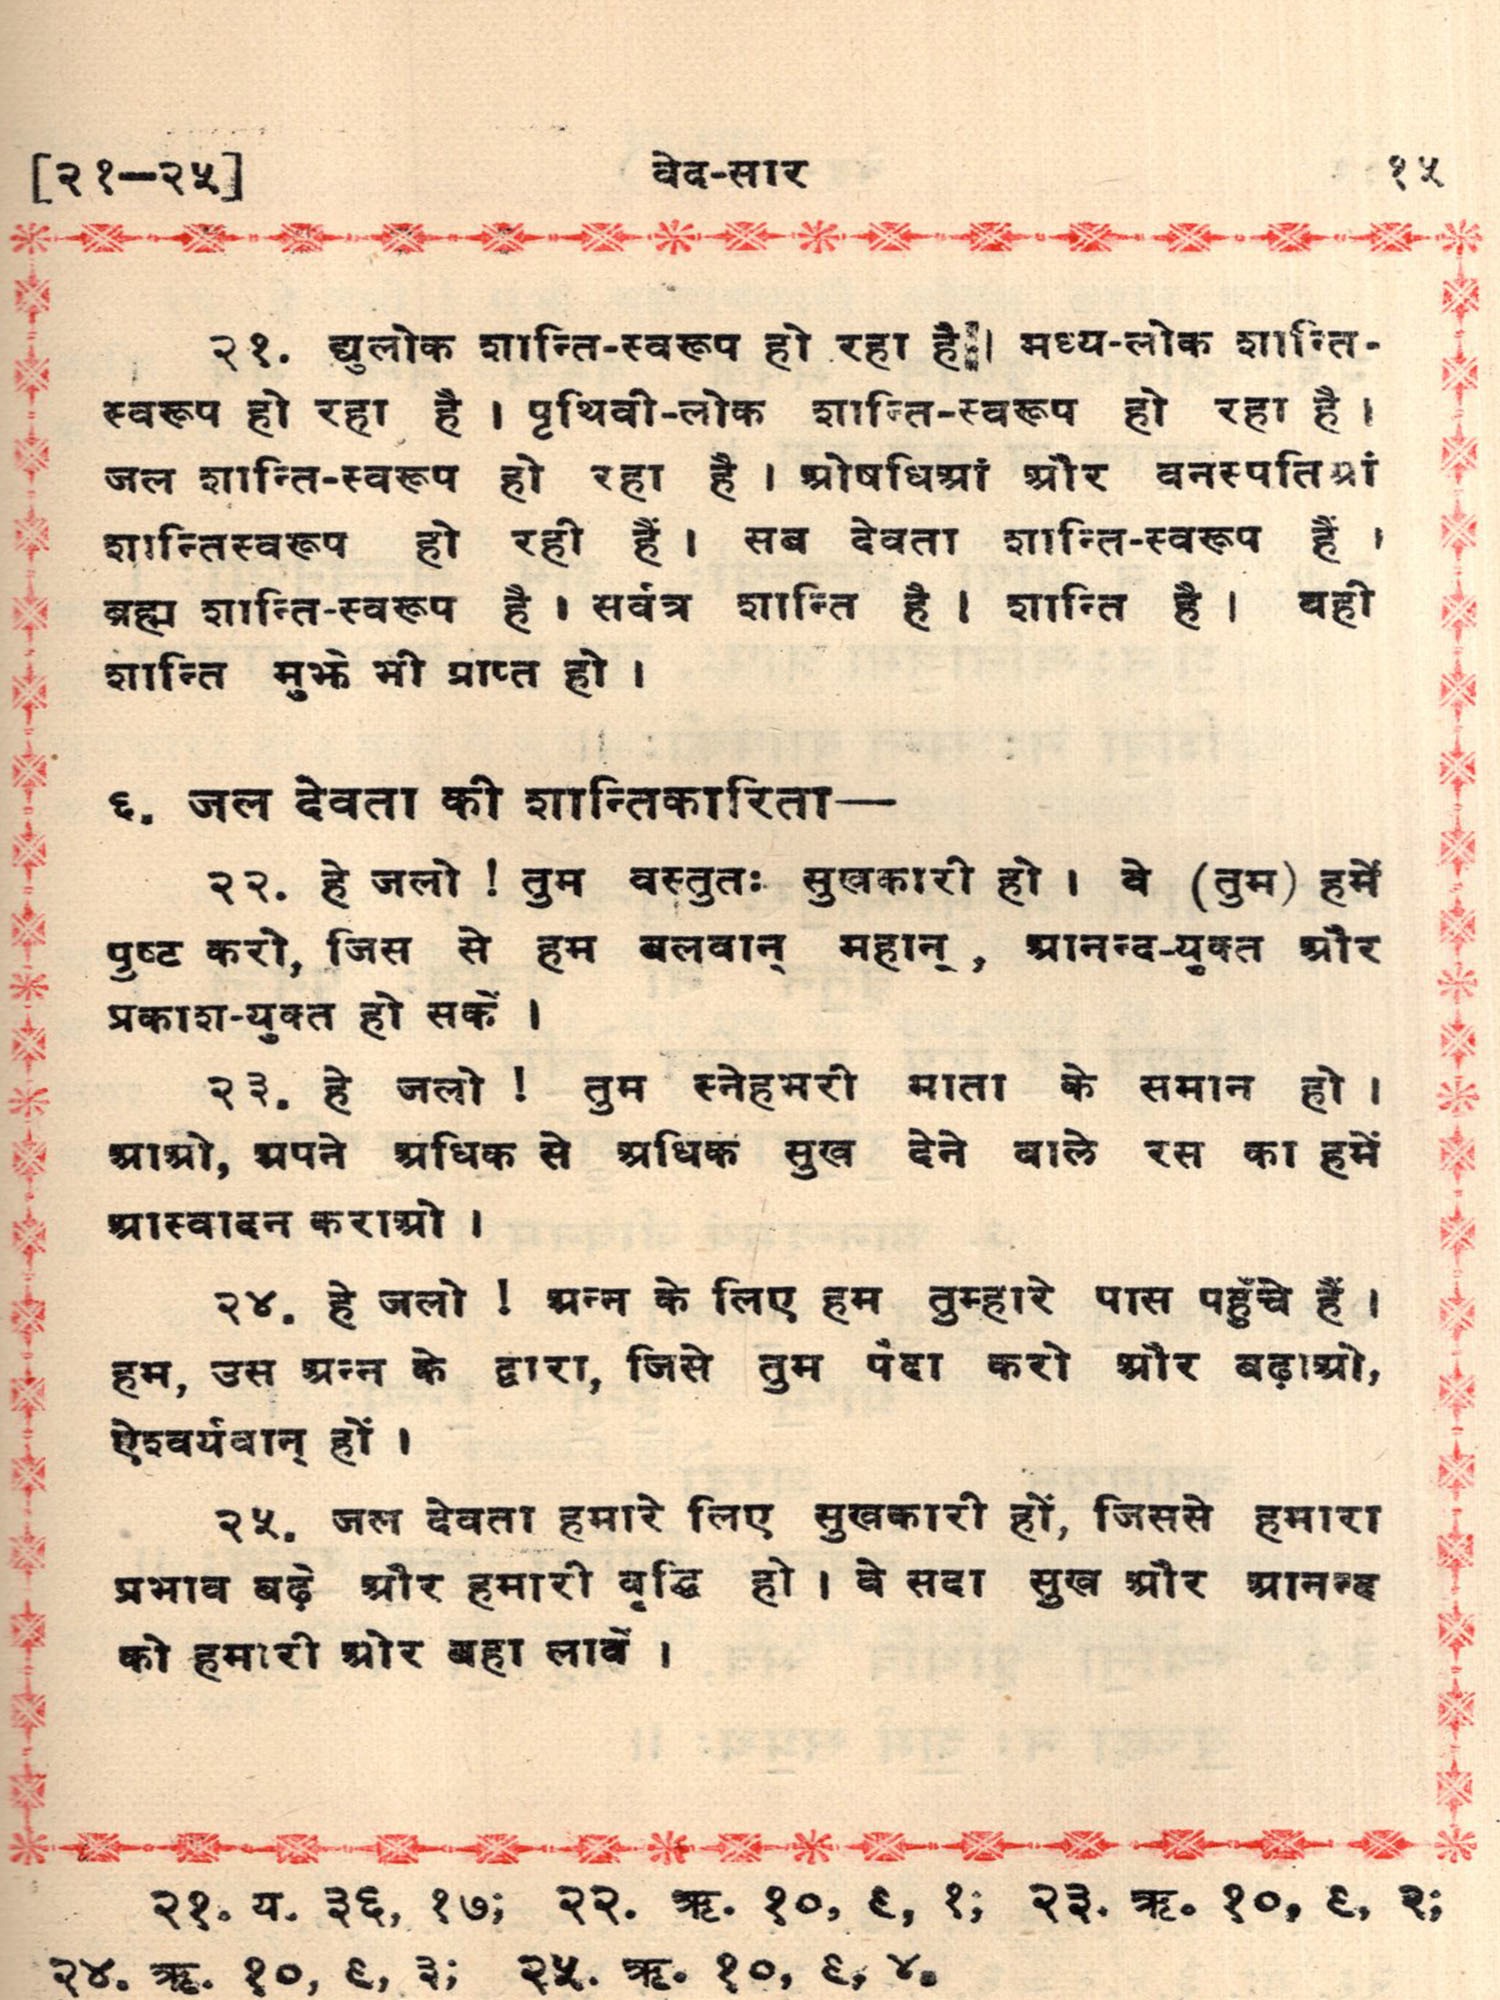 [२१—२५] वेद-सार १५
२१. द्युलोक शान्ति-स्वरूप हो रहा है। मध्य-लोक शान्ति-
स्वरूप हो रहा है । पृथिवी-लोक शान्ति-स्वरूप हो रहा है ।
जल शान्ति-स्वरूप हो रहा है । ओषधिआं और वनस्पतिआं
शान्तिस्वरूप हो रही हैं । सब देवता शान्ति-स्वरूप हैं ।
ब्रह्म शान्ति-स्वरूप है । सर्वत्र शान्ति है । शान्ति है । वही
शान्ति मुझे भी प्राप्त हो ।
६. जल देवता की शान्तिकारिता—
२२. हे जलो ! तुम वस्तुतः सुखकारी हो । वे (तुम) हमें
पुष्ट करो, जिस से हम बलवान् महान् , आनन्द-युक्त और
प्रकाश-युक्त हो सकें ।
२३. हे जलो ! तुम स्नेहभरी माता के समान हो ।
आओ, अपने अधिक से अधिक सुख देने वाले रस का हमें
आस्वादन कराओ ।
२४. हे जलो ! अन्न के लिए हम तुम्हारे पास पहुँचे हैं ।
हम, उस अन्न के द्वारा, जिसे तुम पैदा करो और बढ़ाओ,
ऐश्वर्यवान् हों ।
२५. जल देवता हमारे लिए सुखकारी हों, जिससे हमारा
प्रभाव बढ़े और हमारी वृद्धि हो । वे सदा सुख और आनन्द
को हमारी ओर बहा लावें ।
२१. य. ३६, १७; २२. ऋ. १०, ९, १; २३. ऋ. १०, ९, २;
२४. ऋ. १०, ९, ३; २५. ऋ. १०, ९, ४.